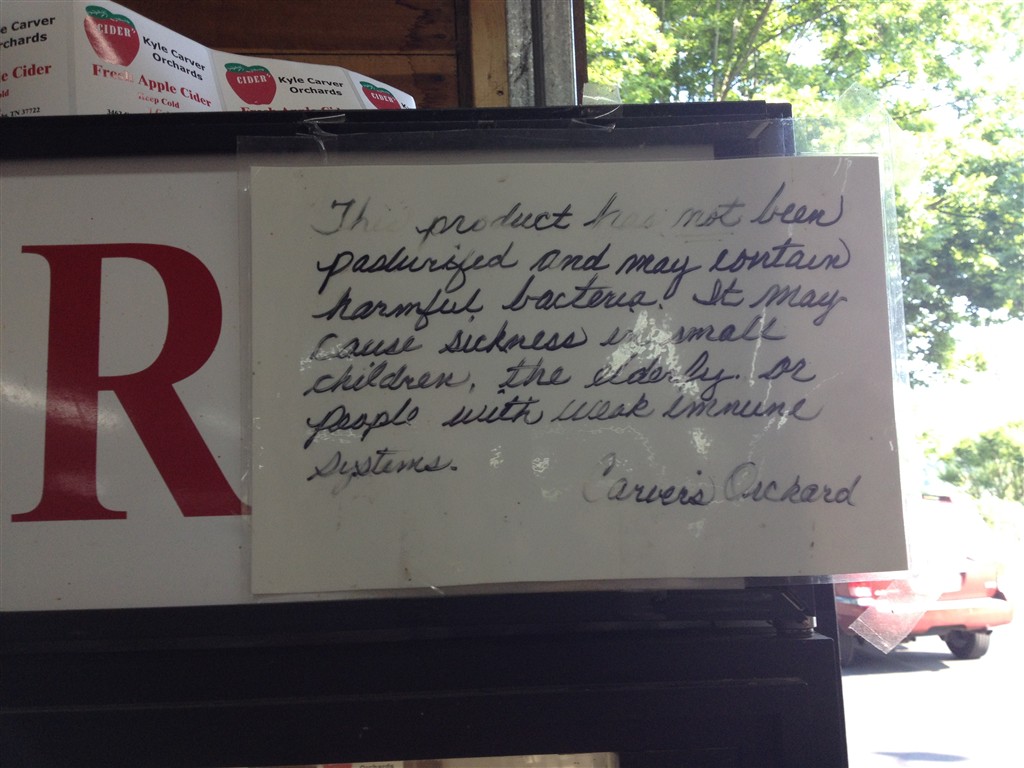 Kyle Carver
Orchards
Apple Cider
CIDER
Kyle Carver
Orchards
Fresh Apple Cider
Keep Cold
TN 37722
CIDER
Kyle Carver
Orchards
Fresh Apple Cider
CIDER
R
This product has not been
pasturified and may contain
harmful bacteria. It may
cause sickness in small
children, the elderly. or
people with weak immune
systems.
Carver's Orchard
Orchards